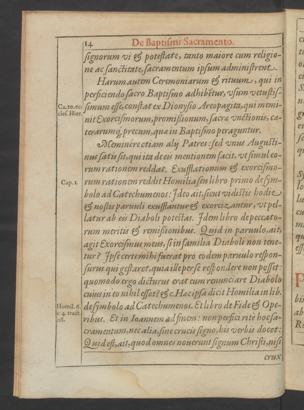 14 De Baptismi Sacramento.
signorum vi & potestate, tanto maiore cum religio-
ne ac sanctitate, sacramentum ipsum administrent.
Harum autem Ceremoniarum & rituum, qui in
perficiendo sacro Baptismo adhibētur, vsum vetustis-
simum esse, constat ex Dionysio Areopagita, qui memi-
nit Exorcismorum, promissionum, sacræ vnctionis, cæ-
terarumq́; precum, quæ in Baptismo peraguntur.
Ca. 10. ec-
cles. Hier.
Meminere etiam alij Patres: sed vnus Augusti-
nus satis sit, qui ita de eis mentionem facit, vt simul eo-
rum rationem reddat. Exufflationum & exorcismo-
rum rationem reddit Homilia sen libro primo de sim-
bolo ad Catechumenos: Ideo ait, sicut vidistis hodie
& nostis paruuli exsufflantur & exorcizantur, vt pel-
latur ab eis Diaboli potestas. Idem libro de peccato-
rum meritis & remissionibus. Quid in paruulo, ait,
agit Exorcismus meus, si in familia Diaboli non tene-
tur? Ipse certè mihi fuerat pro eodem paruulo respon-
surus qui gestaret, quia ille per se respondere non posset:
quomodo ergo dicturus erat eum renunciare Diabolo
cuius in eo nihil esset? &c. Hæc ipsa dicit Homilia in lib.
de simbolo ad Catechumenos. Et libro de Fide & Ope-
ribus. Et in Ioannem ad finem: non perfici ritè hoc sa-
cramentum, nec alia, sine crucis signo, his verbis docet:
Quid est, ait, quod omnes nouerunt signum Christi, nisi
Cap. 1.
Homil. 6.
crux